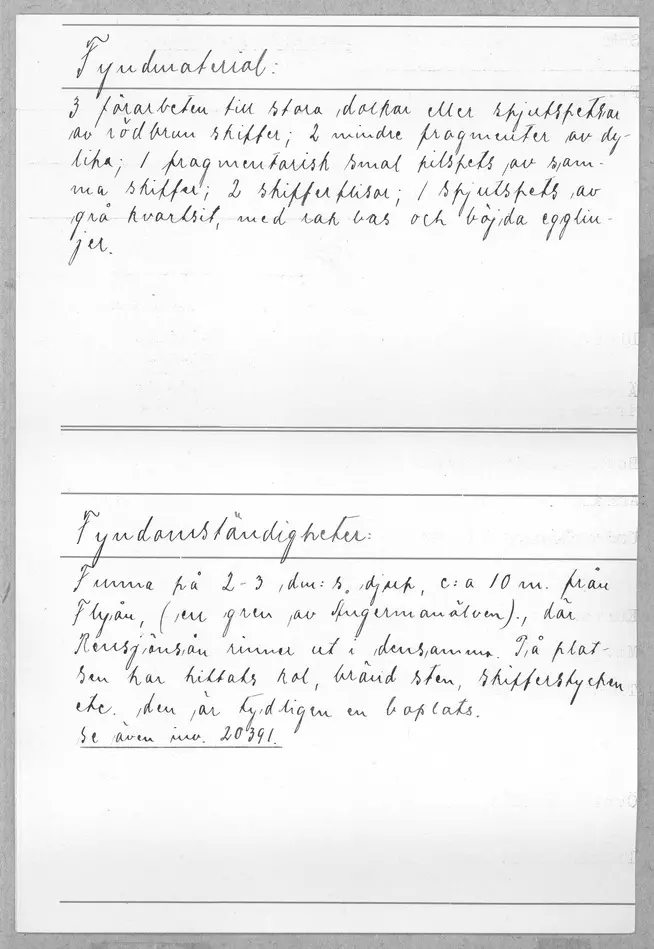 Fyndmaterial:
3 förarbeten till stora dolkar eller spjutspetsar
av rödbrun skiffer; 2 mindre fragmenter av dy-
lika; 1 fragmentarisk smal pilspets av sam-
ma skiffer; 2 skifferflisor; 1 spjutspets av
grå kvartsit, med rak bas och böjda egglin-
jer.
Fyndomständigheter:
Funna på 2-3 dm:s. djup, c:a 10 m. från
Flyån, (en gren av Ångermanälven)., där
Rensjönsån rinner ut i densamma. På plat-
sen har hittats kol, bränd sten, skifferstycken
etc. den är tydligen en boplats.
Se även inv. 20391.